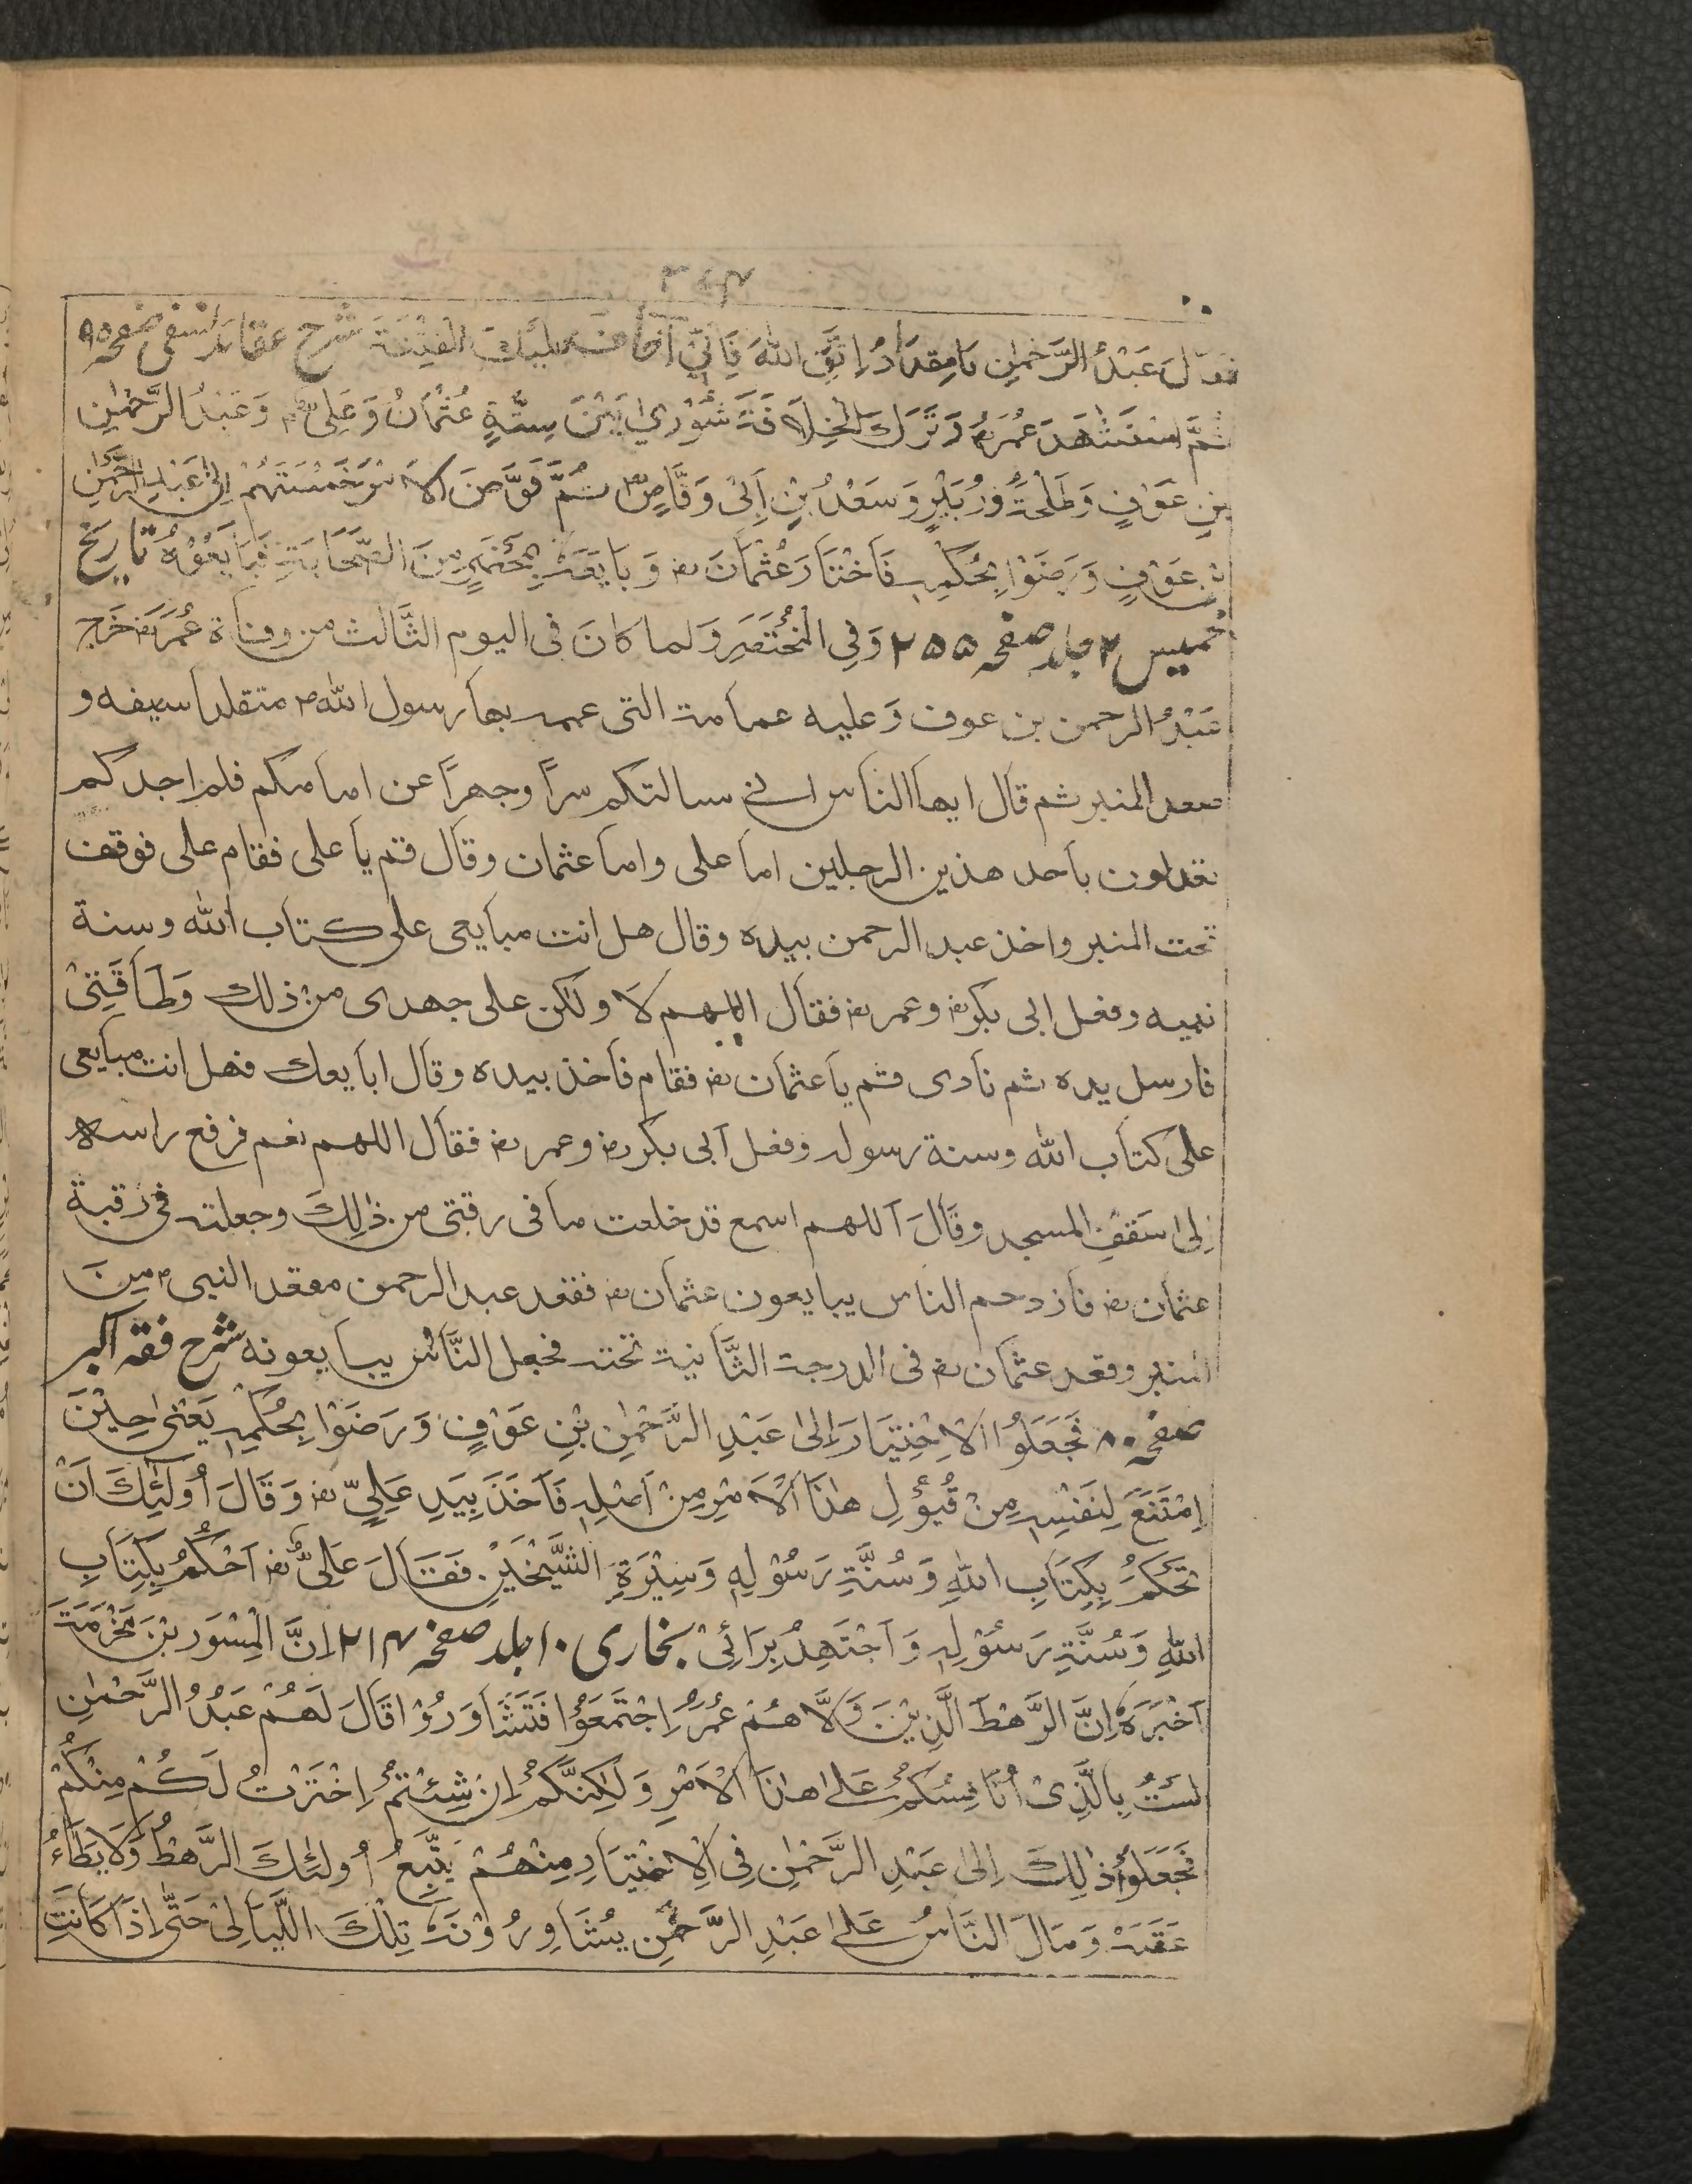 ۲۶۴
فقال عَبْدُ الرَّحْمٰنِ يَا مِقْدَادُ اِتَّقِ اللّٰهَ فَاِنِّيْ اَخَافُ عَلَيْكَ الْفِتْنَةَ شرح عقائد نسفی صفحہ ۹۵
ثُمَّ اسْتَشْهَدَ عُمَرُ رض وَتَرَكَ الْخِلَافَةَ شُوْرٰى بَيْنَ سِتَّةٍ عُثْمَانُ وَعَلِيٌّ رض وَعَبْدُ الرَّحْمٰنِ
بْنِ عَوْفٍ وَطَلْحَةُ وَزُبَيْرٍ وَسَعْدُ بْنِ اَبِيْ وَقَّاصٍ رض ثُمَّ فَوَّضَ الْاَمْرَ خَمْسَتُهُمْ اِلٰى عَبْدِ الرَّحْمٰنِ
بْنِ عَوْفٍ وَرَضَوْا بِحُكْمِهٖ فَاخْتَارَ عُثْمَانَ رض وَبَايَعَهُ بِمَحْضَرٍ مِنَ الصَّحَابَةِ فَبَايَعُوْهُ تاریخ
خمیس ۲ جلد صفحہ ۲۵۵ وَفِي الْمُخْتَصَرِ وَلما كَانَ فى اليوم الثَّالث من وفاة عُمَرَ رض خَرَجَ
عَبْدُ الرحمن بن عوف وَعليه عمامة التى عممه بها رسول اللّٰه ص متقلدا سيفه و
صعد المنبر ثم قال ايها الناس انى سالتكم سراً وجهراً عن امامكم فلم اجدكم
تعدلون باحد هذين الرجلين اما على واما عثمان وقال قم يا على فقام على فوقف
تحت المنبر واخذ عبد الرحمن بيده وقال هل انت مبايعى على كتاب اللّٰه وسنة
نبيه وفعل ابى بكر رض وعمر رض فقال اللهم لا ولكن على جهدى من ذلك وَطَاقَتِيْ
فارسل يده ثم نادى قم يا عثمان رض فقام فاخذ بيده وقال ابايعك فهل انت مبايعى
على كتاب اللّٰه وسنة رسوله وفعل ابى بكر رض وعمر رض فقال اللهم نعم فرفع راسه
اِلٰى سَقْفِ المسجد وقَالَ اللهم اسمع قد خلعت ما فى رقبتى من ذٰلِكَ وجعلته فى رقبة
عثمان رض فازدحم الناس يبايعون عثمان رض فقعد عبد الرحمن مقعد النبى ص مِنَ
المنبر وقعد عثمان رض فى الدرجة الثَّانية تحته فجعل النَّاسُ يبايعونه شرح فقہ اکبر
صفحہ ۸۰ فَجَعَلُوا الْاِخْتِيَارَ اِلٰى عَبْدِ الرَّحْمٰنِ بْنِ عَوْفٍ وَرَضَوْا بِحُكْمِهٖ يَعْنِىْ حِيْنَ
اِمْتَنَعَ لِنَفْسِهٖ مِنْ قُبُوْلِ هٰذَا الْاَمْرِ مِنْ اَصْلِهٖ فَاَخَذَ بِيَدِ عَلِيٍّ رض وَقَالَ اُولٰئِكَ اَنْ
تَحْكُمَ بِكِتَابِ اللّٰهِ وَسُنَّةِ رَسُوْلِهٖ وَسِيْرَةِ الشَّيْخَيْنِ فَقَالَ عَلِيٌّ رض اَحْكُمُ بِكِتَابِ
اللّٰهِ وَسُنَّةِ رَسُوْلِهٖ وَاَجْتَهِدُ بِرَائِيْ بخاری ۱۰ جلد صفحہ ۲۱۴ اِنَّ الْمِسْوَرَ بْنَ مَخْرَمَةَ
اَخْبَرَهٗ اِنَّ الرَّهْطَ الَّذِيْنَ وَلَّاهُمْ عُمَرُ اِجْتَمَعُوْا فَتَشَاوَرُوْا قَالَ لَهُمْ عَبْدُ الرَّحْمٰنِ
لَسْتُ بِالَّذِىْ اُنَافِسُكُمْ عَلٰى هٰذَا الْاَمْرِ وَلٰكِنَّكُمْ اِنْ شِئْتُمْ اِخْتَرْتُ لَكُمْ مِنْكُمْ
فَجَعَلُوْا ذٰلِكَ اِلٰى عَبْدِ الرَّحْمٰنِ فِى الْاِخْتِيَارِ مِنْهُمْ يَتَّبِعُ اُولٰئِكَ الرَّهْطُ وَلَا يَطَاءُ
عَقَبَهٗ وَمَالَ النَّاسُ عَلٰى عَبْدِ الرَّحْمٰنِ يُشَاوِرُوْنَهٗ تِلْكَ اللَّيَالِىْ حَتّٰى اِذَا كَانَتِ